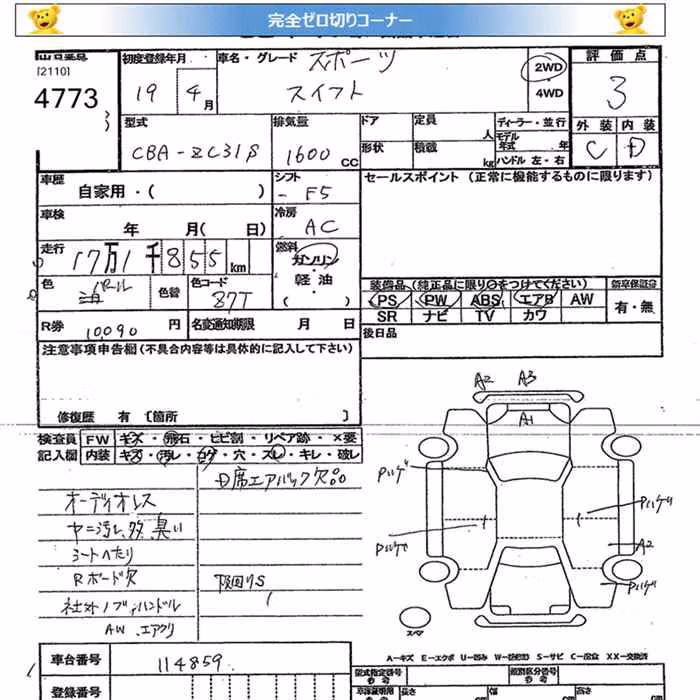 完全ゼロ切りコーナー
[2110]
4773
初度登録年月
19 4月
車名・グレード スポーツ
スイフト
2WD
・
4WD
評価点
3
外装 内装
C D
型式
CBA-ZC31S
排気量
1600cc
ドア
形状
定員 人
積載 kg
ディーラー・並行
モデル年式 年
ハンドル 左・右
車歴
自家用・( )
シフト
- F5
車検
年 月( 日)
冷房
AC
走行
17万1千855km
燃料
ガソリン
・
軽油
・
( )
色
パール
色替
色コード
37T
R券
10,090 円
名変通知期限 月 日
セールスポイント (正常に機能するものに限ります)
装備品 (純正品に限り○をつけてください)
PS PW ABS エアB AW
SR ナビ TV カワ
新車保証書
有・無
後日品
注意事項申告欄 (不具合内容等は具体的に記入して下さい)
修復歴 有 〔箇所 〕
検査員記入欄
FW キズ・飛石・ヒビ割・リペア跡・×要
内装 キズ・汚レ・コゲ・穴・スレ・キレ・破レ
D席エアバック欠品
オーディオレス
ヤニ汚レ 多 臭い
シートへたり
Rボード欠
下回りS
社外ノブ,ハンドル
AW.エアクリ
A2 A3
A1
Pハゲ
Pハゲ
Pハゲ
A2
Pハゲ
スペア
A-キズ E-エクボ U-凹み W-波(修理) S-サビ C-腐食 XX-交換済
車台番号
114859
登録番号
型式指定番号
参考
類別区分番号
参考
長さ
幅
高さ